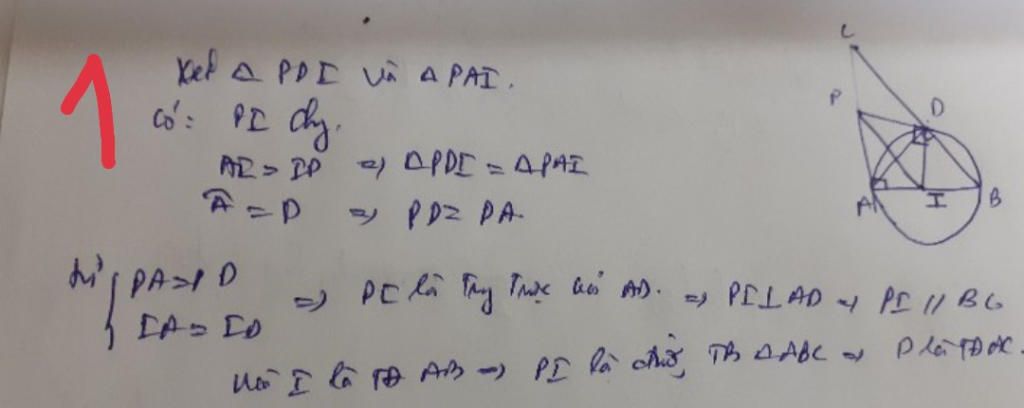 1
Xét △ PDI và △ PAI.
Có: PI chg.
AI = ID => △PDI = △PAI
Â = D => PD = PA
từ { PA = PD
IA = ID
=> PI là Trg Trực của AD. => PI ⊥ AD => PI // BC
Mà I là TĐ AB => PI là đường TB △ABC => P là TĐ AC.
C
P
D
A
I
B